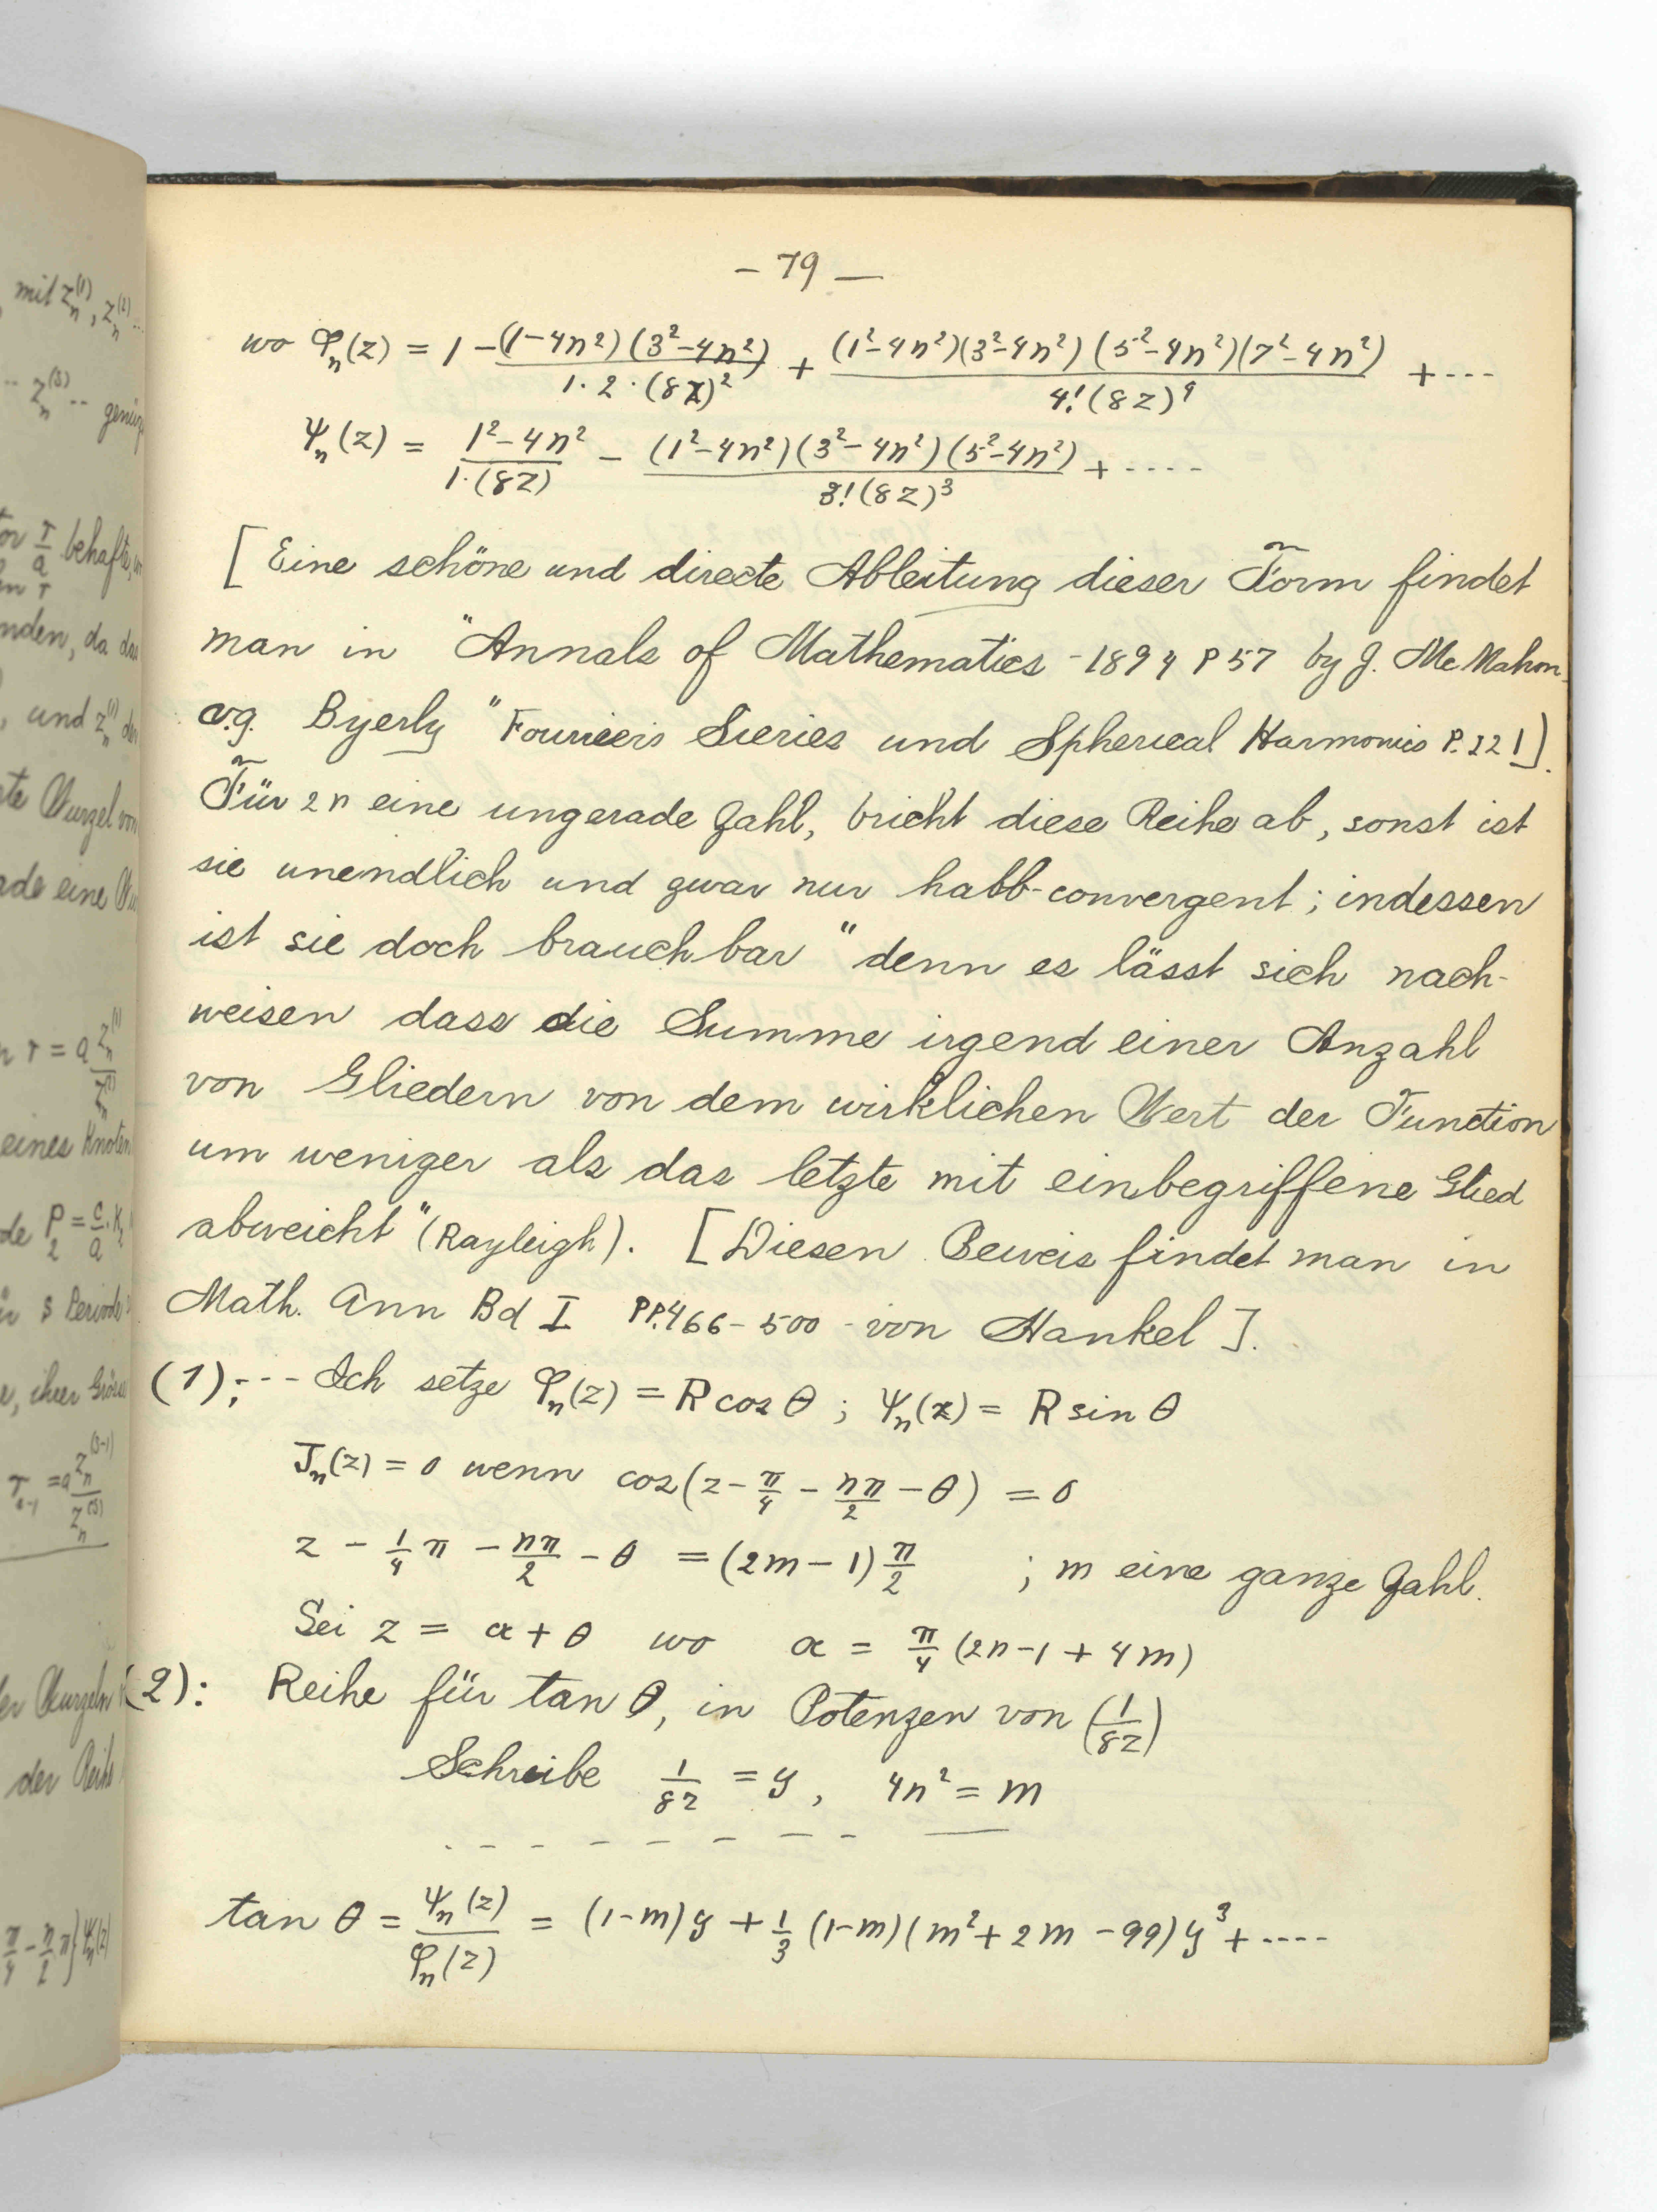 mit z_n^(1), z_n^(2) ...
-- z_n^(3) --
r/a
und z_n^(1)
Wurzel von
eine
r = a z_n^(1)
eines Knoten
der Reihe
- 79 -
wo φ_n(z) = 1 - (1-4n²)(3²-4n²) / 1·2·(8z)² + (1²-4n²)(3²-4n²)(5²-4n²)(7²-4n²) / 4!(8z)⁴ + ---
ψ_n(z) = 1²-4n² / 1·(8z) - (1²-4n²)(3²-4n²)(5²-4n²) / 3!(8z)³ + ----
[Eine schöne und directe Ableitung dieser Form findet
man in "Annals of Mathematics - 1894 P 57 by J. Mc Mahon
v.g. Byerly "Fouriers Series und Spherical Harmonics P. 221].
Für 2n eine ungerade Zahl, bricht diese Reihe ab, sonst ist
sie unendlich und zwar nur halb-convergent; indessen
ist sie doch brauchbar "denn es lässt sich nach-
weisen dass die Summe irgend einer Anzahl
von Gliedern von dem wirklichen Wert der Function
um weniger als das letzte mit einbegriffene Glied
abweicht" (Rayleigh). [Diesen Beweis findet man in
Math. Ann Bd I PP. 466-500 - von Hankel].
(1);--- Ich setze φ_n(z) = R cos θ ; ψ_n(z) = R sin θ
J_n(z) = 0 wenn cos(z - π/4 - nπ/2 - θ) = 0
z - 1/4 π - nπ/2 - θ = (2m-1) π/2 ; m eine ganze Zahl.
Sei z = α + θ wo α = π/4 (2n-1 + 4m)
(2): Reihe für tan θ, in Potenzen von (1/8z)
Schreibe 1/8z = y, 4n² = m
tan θ = ψ_n(z) / φ_n(z) = (1-m)y + 1/3 (1-m)(m²+2m-99)y³ + ----